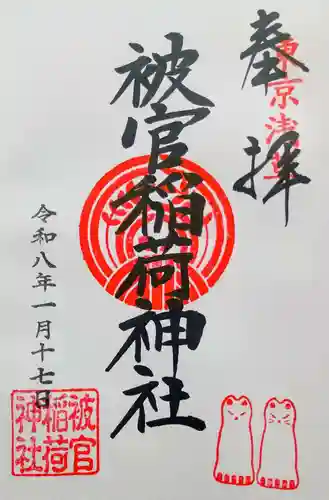 奉拝
東京浅草
被官稲荷神社
令和八年一月十七日
被官
稲荷
神社